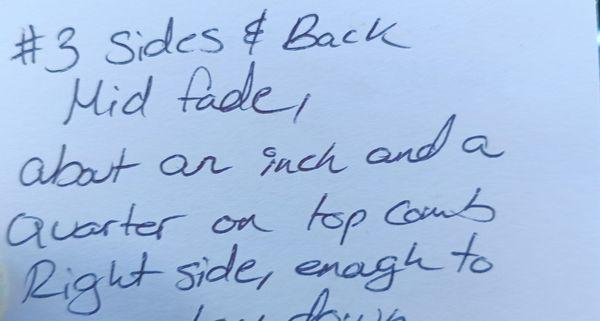 #3 Sides & Back
Mid fade,
about an inch and a
Quarter on top comb
Right side, enagh to
lay down